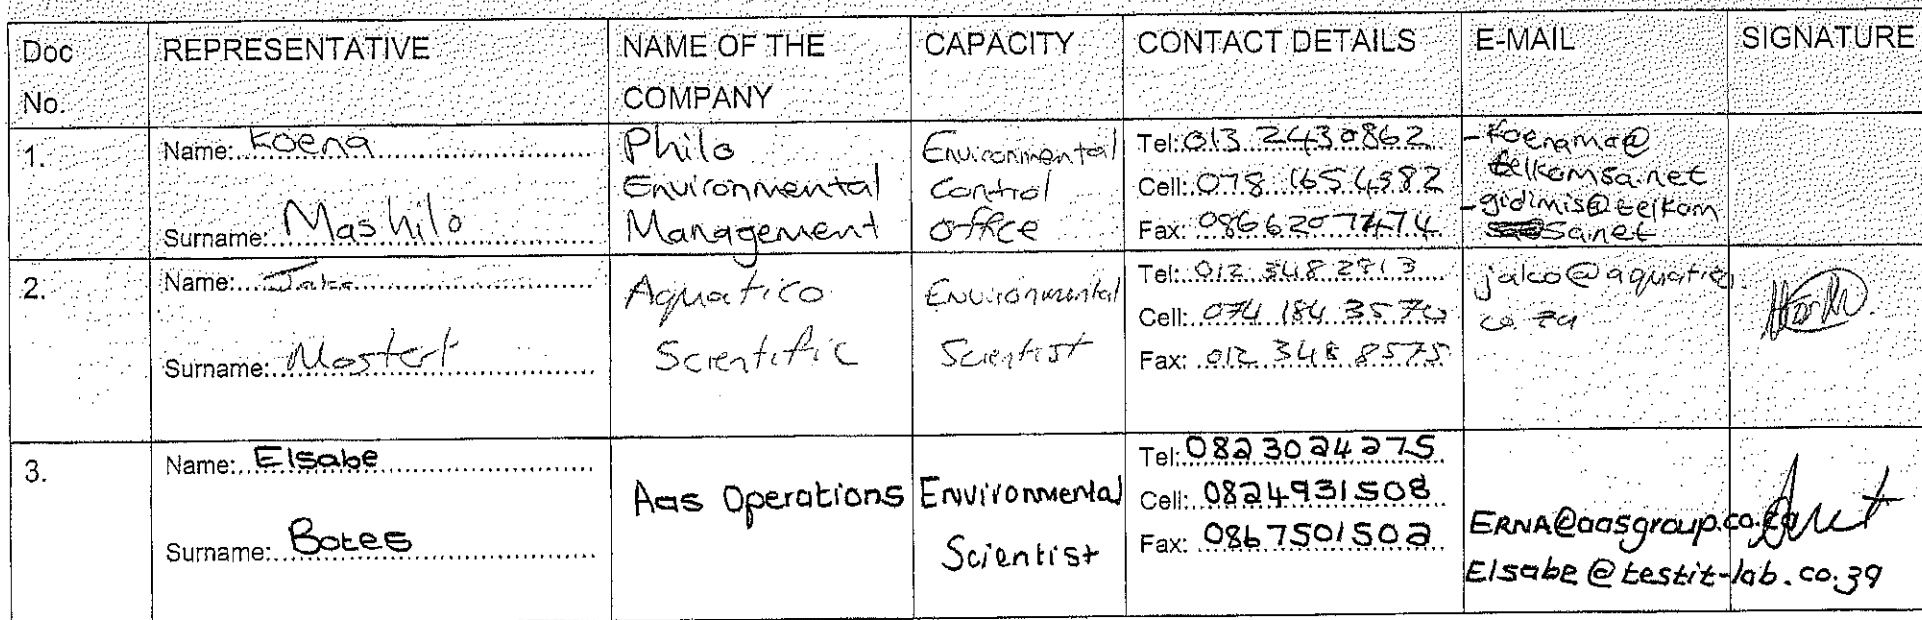 Doc No. REPRESENTATIVE NAME OF THE COMPANY CAPACITY CONTACT DETAILS E-MAIL SIGNATURE
1.
Name: Koena
Surname: Mashilo
Philo
Environmental
Management
Environmental
Control
Office
Tel: 013 2430862
Cell: 078 1654982
Fax: 0866207474
-koenama@
telkomsa.net
-gidimis@telkom
sa.net
2.
Name: Jako
Surname: Mostert
Aquatico
Scientific
Environmental
Scientist
Tel: 012 348 2813
Cell: 074 184 3570
Fax: 012 348 8575
jako@aquatico.
co.za
3.
Name: Elsabe
Surname: Botes
Aas Operations
Environmental
Scientist
Tel: 0823024275
Cell: 0824931508
Fax: 0867501502
ERNA@aasgroup.co.za
Elsabe@testit-lab.co.zq